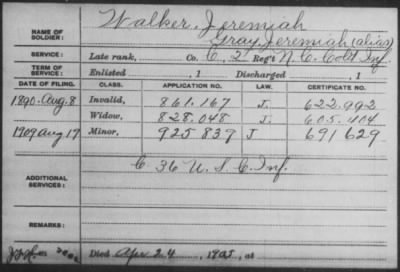 NAME OF SOLDIER: Walker, Jeremiah
Gray, Jeremiah (alias)
SERVICE: Late rank, Co. C, 2" Reg't N.C. Cold Inf.
TERM OF SERVICE: Enlisted , 1 Discharged , 1
DATE OF FILING. CLASS. APPLICATION NO. LAW. CERTIFICATE NO.
1890. Aug. 8 Invalid, 861.167 J. 622.992
Widow, 828.048 J. 605.404
1909 Aug 17 Minor, 925 837 J 691 629
ADDITIONAL SERVICES: C. 36 U. S. C. Inf.
REMARKS:
Died Apr 24, 1905, at